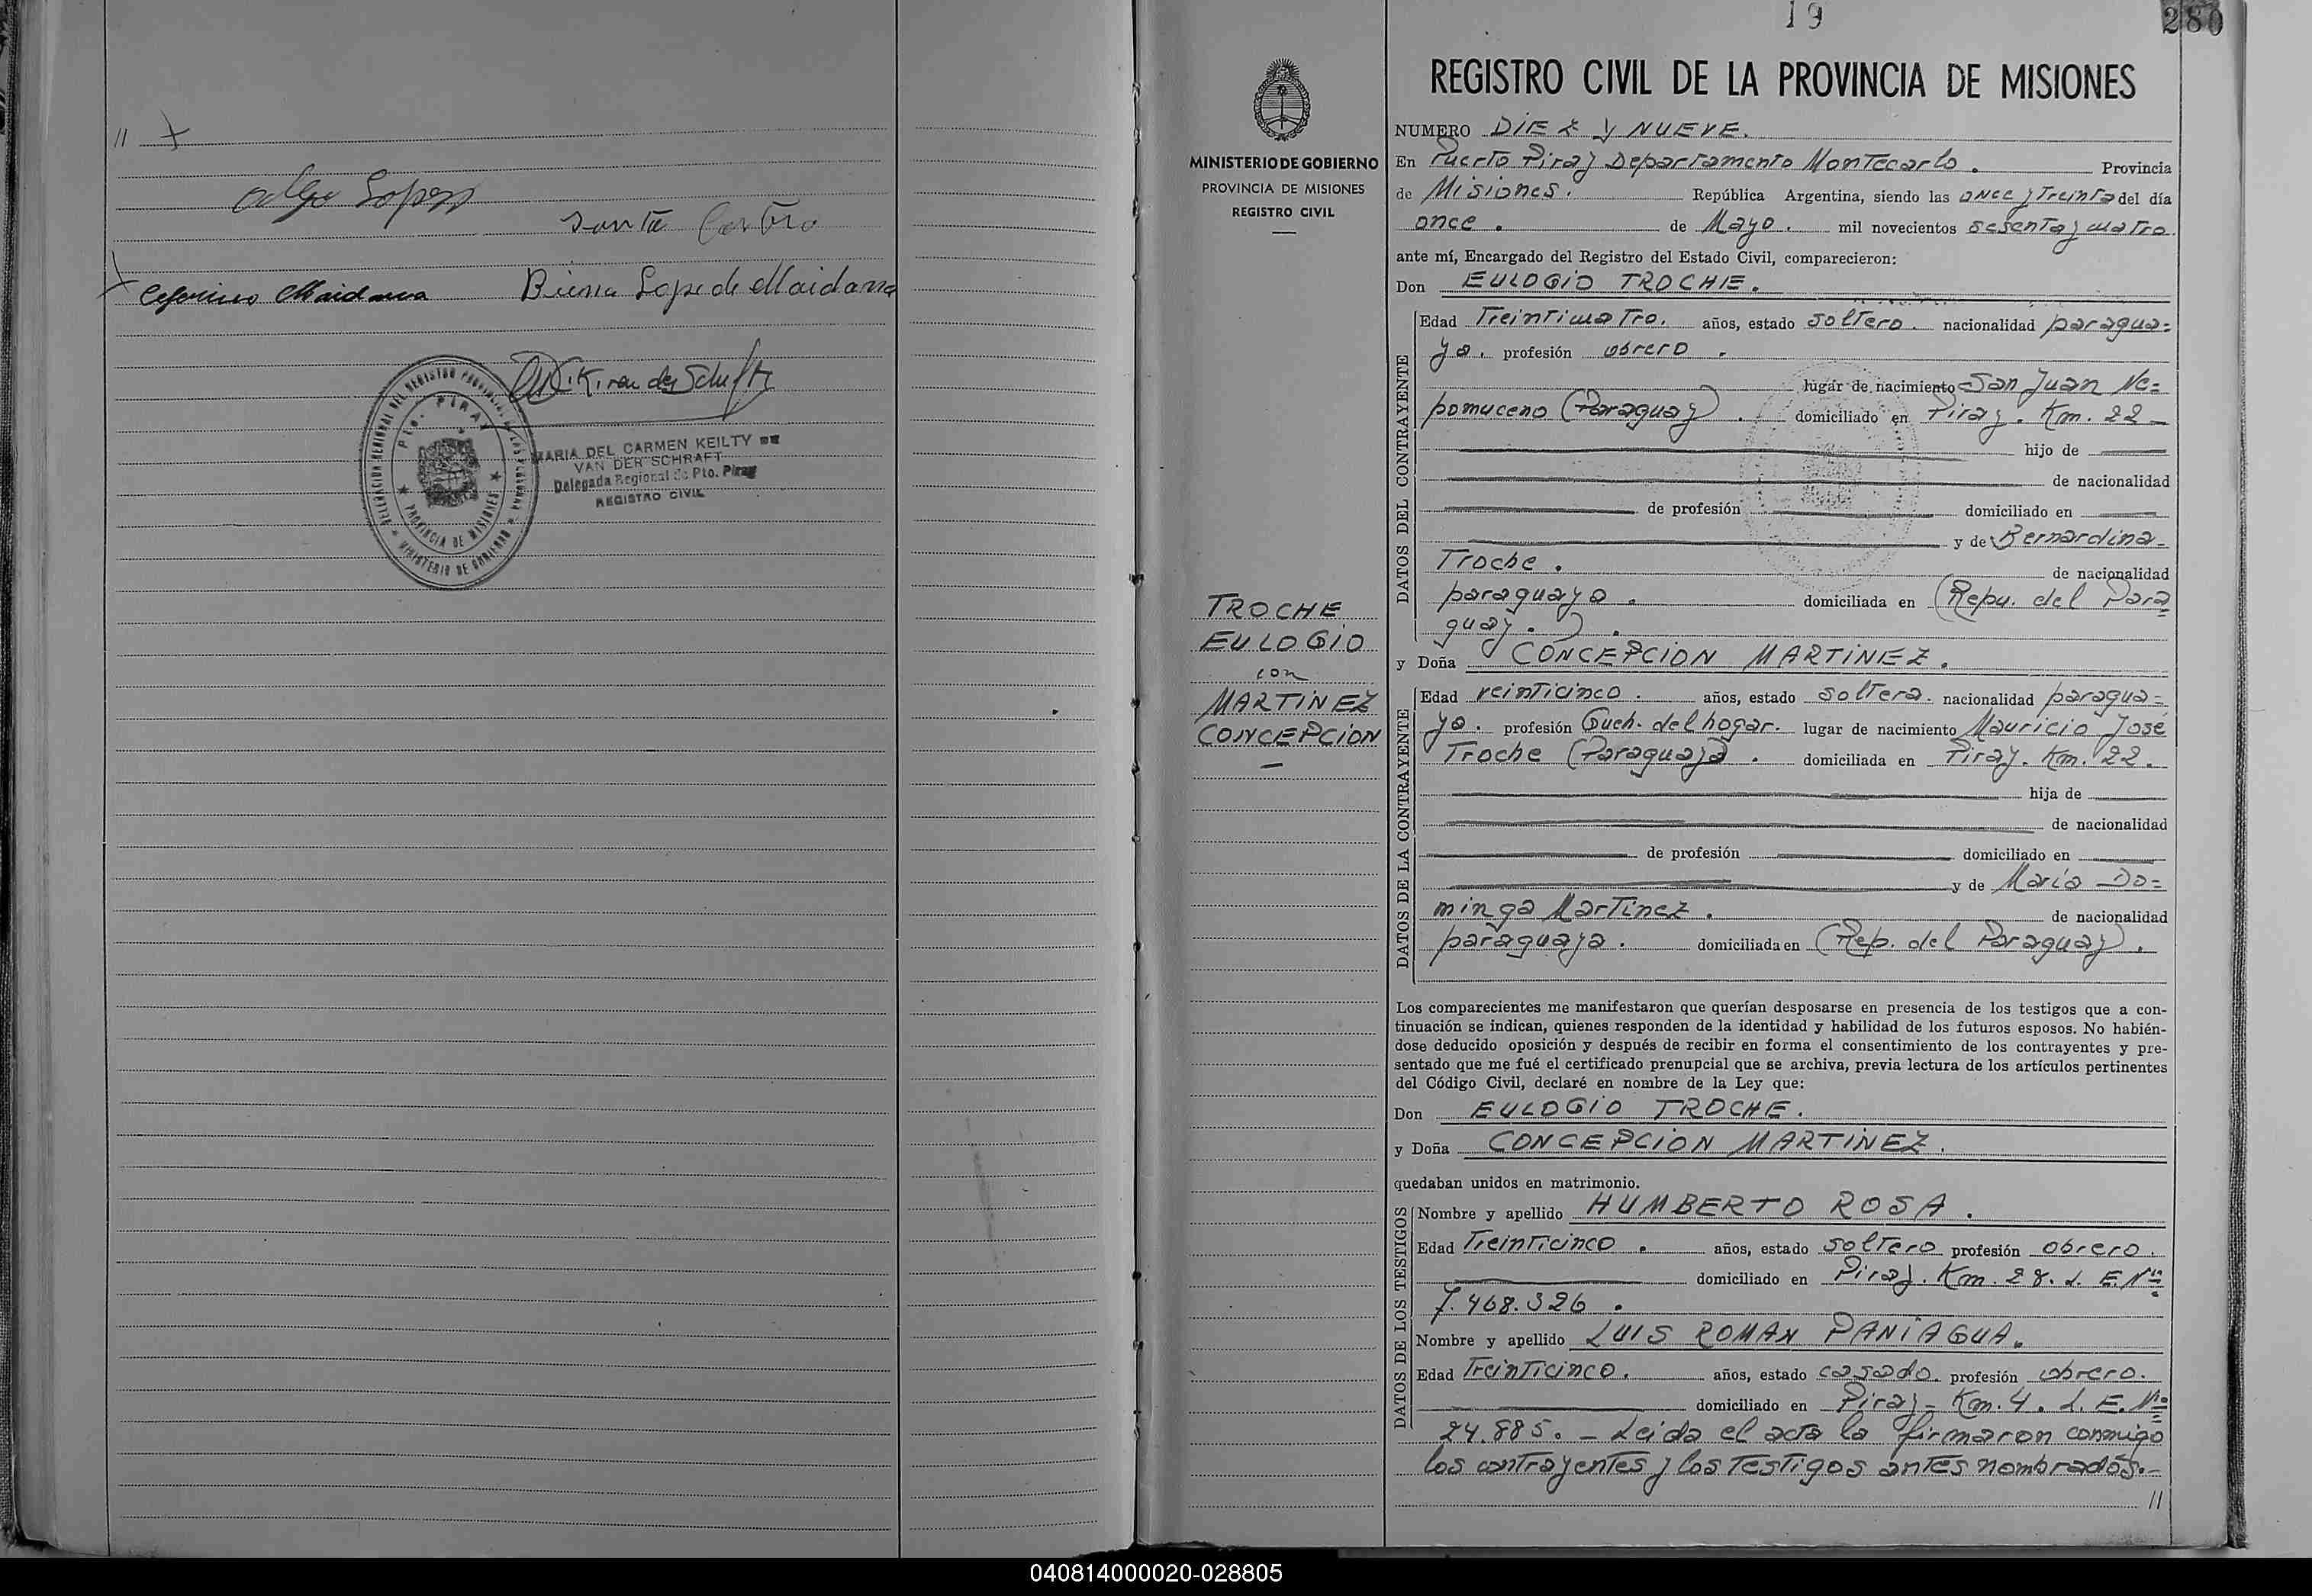 //
Lopez
Santa Castro
Ceferino Maidana
Lope de Maidana
DELEGACION REGIONAL DEL REGISTRO PROVINCIAL DE LAS PERSONAS
MINISTERIO DE GOBIERNO
Pto. PIRAY
PROVINCIA DE MISIONES
MARIA DEL CARMEN KEILTY DE
VAN DER SCHRAFT
Delegada Regional de Pto. Piray
REGISTRO CIVIL
19
280
MINISTERIO DE GOBIERNO
PROVINCIA DE MISIONES
REGISTRO CIVIL
TROCHE
EULOGIO
con
MARTINEZ
CONCEPCION
REGISTRO CIVIL DE LA PROVINCIA DE MISIONES
NUMERO DIEZ Y NUEVE.
En Puerto Piray Departamento Montecarlo. Provincia
de Misiones. República Argentina, siendo las once y treinta del día
once. de Mayo. mil novecientos sesenta y cuatro.
ante mí, Encargado del Registro del Estado Civil, comparecieron:
Don EULOGIO TROCHE.
DATOS DEL CONTRAYENTE
Edad Treinticuatro. años, estado soltero. nacionalidad paragua=
ya. profesión obrero.
lugar de nacimiento San Juan Ne=
pomuceno (Paraguay). domiciliado en Piray. Km. 22
hijo de
de nacionalidad
de profesión domiciliado en
y de Bernardina
Troche. de nacionalidad
paraguaya. domiciliada en (Repu. del Para
guay.).
y Doña CONCEPCION MARTINEZ.
DATOS DE LA CONTRAYENTE
Edad veinticinco. años, estado soltera. nacionalidad paragua=
ya. profesión Queh. del hogar. lugar de nacimiento Mauricio José
Troche (Paraguay). domiciliada en Piray. Km. 22.
hija de
de nacionalidad
de profesión domiciliado en
y de Maria Do=
minga Martinez. de nacionalidad
paraguaya. domiciliada en (Rep. del Paraguay).
Los comparecientes me manifestaron que querían desposarse en presencia de los testigos que a con-
tinuación se indican, quienes responden de la identidad y habilidad de los futuros esposos. No habién-
dose deducido oposición y después de recibir en forma el consentimiento de los contrayentes y pre-
sentado que me fué el certificado prenupcial que se archiva, previa lectura de los artículos pertinentes
del Código Civil, declaré en nombre de la Ley que:
Don EULOGIO TROCHE.
y Doña CONCEPCION MARTINEZ.
quedaban unidos en matrimonio.
DATOS DE LOS TESTIGOS
Nombre y apellido HUMBERTO ROSA.
Edad Treinticinco. años, estado soltero profesión obrero.
domiciliado en Piray. Km. 28. L. E. Nº
7.468.326.
Nombre y apellido LUIS ROMAN PANIAGUA.
Edad Treinticinco. años, estado casado. profesión obrero.
domiciliado en Piray - Km. 4. L. E. Nº
24.885. - Leida el acta la firmaron conmigo
los contrayentes y los testigos antes nombrados.-
//
040814000020-028805